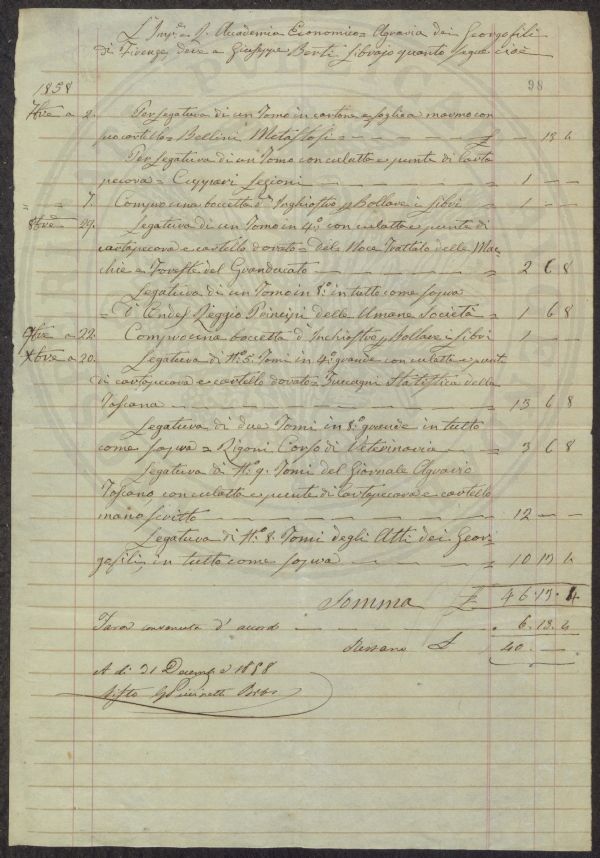 L'Imp.e e R. Accademia Economico-Agraria dei Georgofili
di Firenze, deve a Giuseppe Berti Librajo quanto segue cioè
98
1858
7bre a 2. Per legatura di un Tomo in cartone e foglio a marmo con
cartello = Bellini Metastasi = £ - 13 4
Per legatura di un Tomo con culatta e punte di Carta
pecora = Cuppari Lezioni = 1 - -
" = 7. Compro una boccetta d'Inghiostro p. Bollare i Libri = 1 - -
8bre = 29. Legatura di un Tomo in 4.° con culatta e punte di
cartapecora e cartello dorato = Della Noce Trattato delle Mac-
chie e Foreste del Granducato = 2 6 8
Legatura di un Tomo in 8.° in tutto come sopra
= Reggio Principi delle Umane Società = 1 6 8
9bre a 22. Compro una boccetta d'Inchiostro p. Bollare i Libri 1 - -
Xbre a 20. Legatura di N.° 5. Tomi in 4.° grande con culatta e punte
di cartapecora e cartello dorato = Zuccagni Statistica della
Toscana = 13 6 8
Legatura di due Tomi in 8.° grande in tutto
come sopra = Rigoni Corso di Veterinaria = 3 6 8
Legatura di N.° 9. Tomi del Giornale Agrario
Toscano, con culatta e punte di Cartapecora e cartello
manoscritto = 12 - -
Legatura di N.° 8. Tomi degli Atti dei Geor-
gofili, in tutto come sopra = 10 13 4
Somma £ 46. 13. 4
Tara convenuta d'accordo 6. 13. 4
Restano £ 40. -
A dì 31 Decembre 1858
Visto